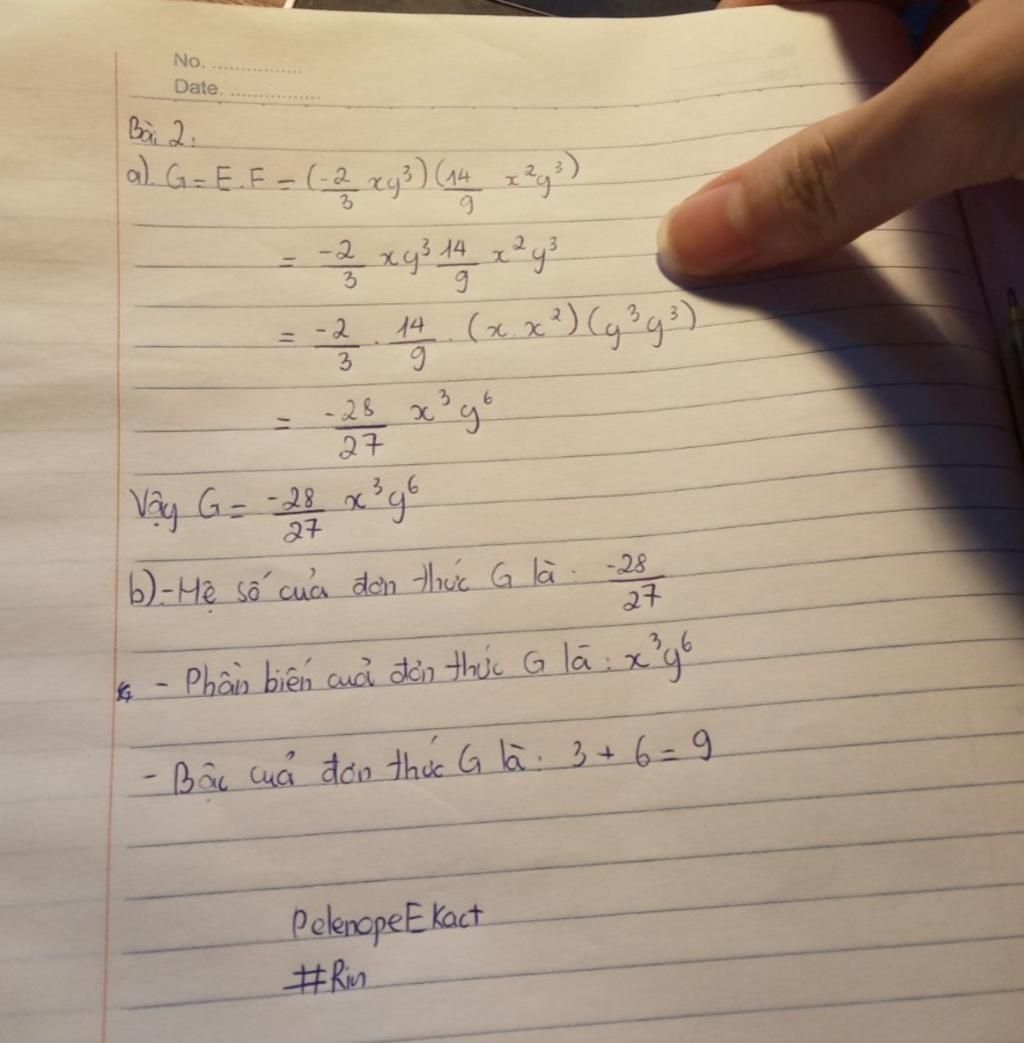 No. ..............
Date. ..............
Bài 2.
a). G = E.F = (-2/3 xy³)(14/9 x²y³)
= -2/3 xy³ 14/9 x²y³
= -2/3 . 14/9 . (x.x²)(y³y³)
= -28/27 x³y⁶
Vậy G = -28/27 x³y⁶
b).- Hệ số của đơn thức G là: -28/27
- Phần biến của đơn thức G là: x³y⁶
- Bậc của đơn thức G là: 3 + 6 = 9
PelenopeEkact
#Rin